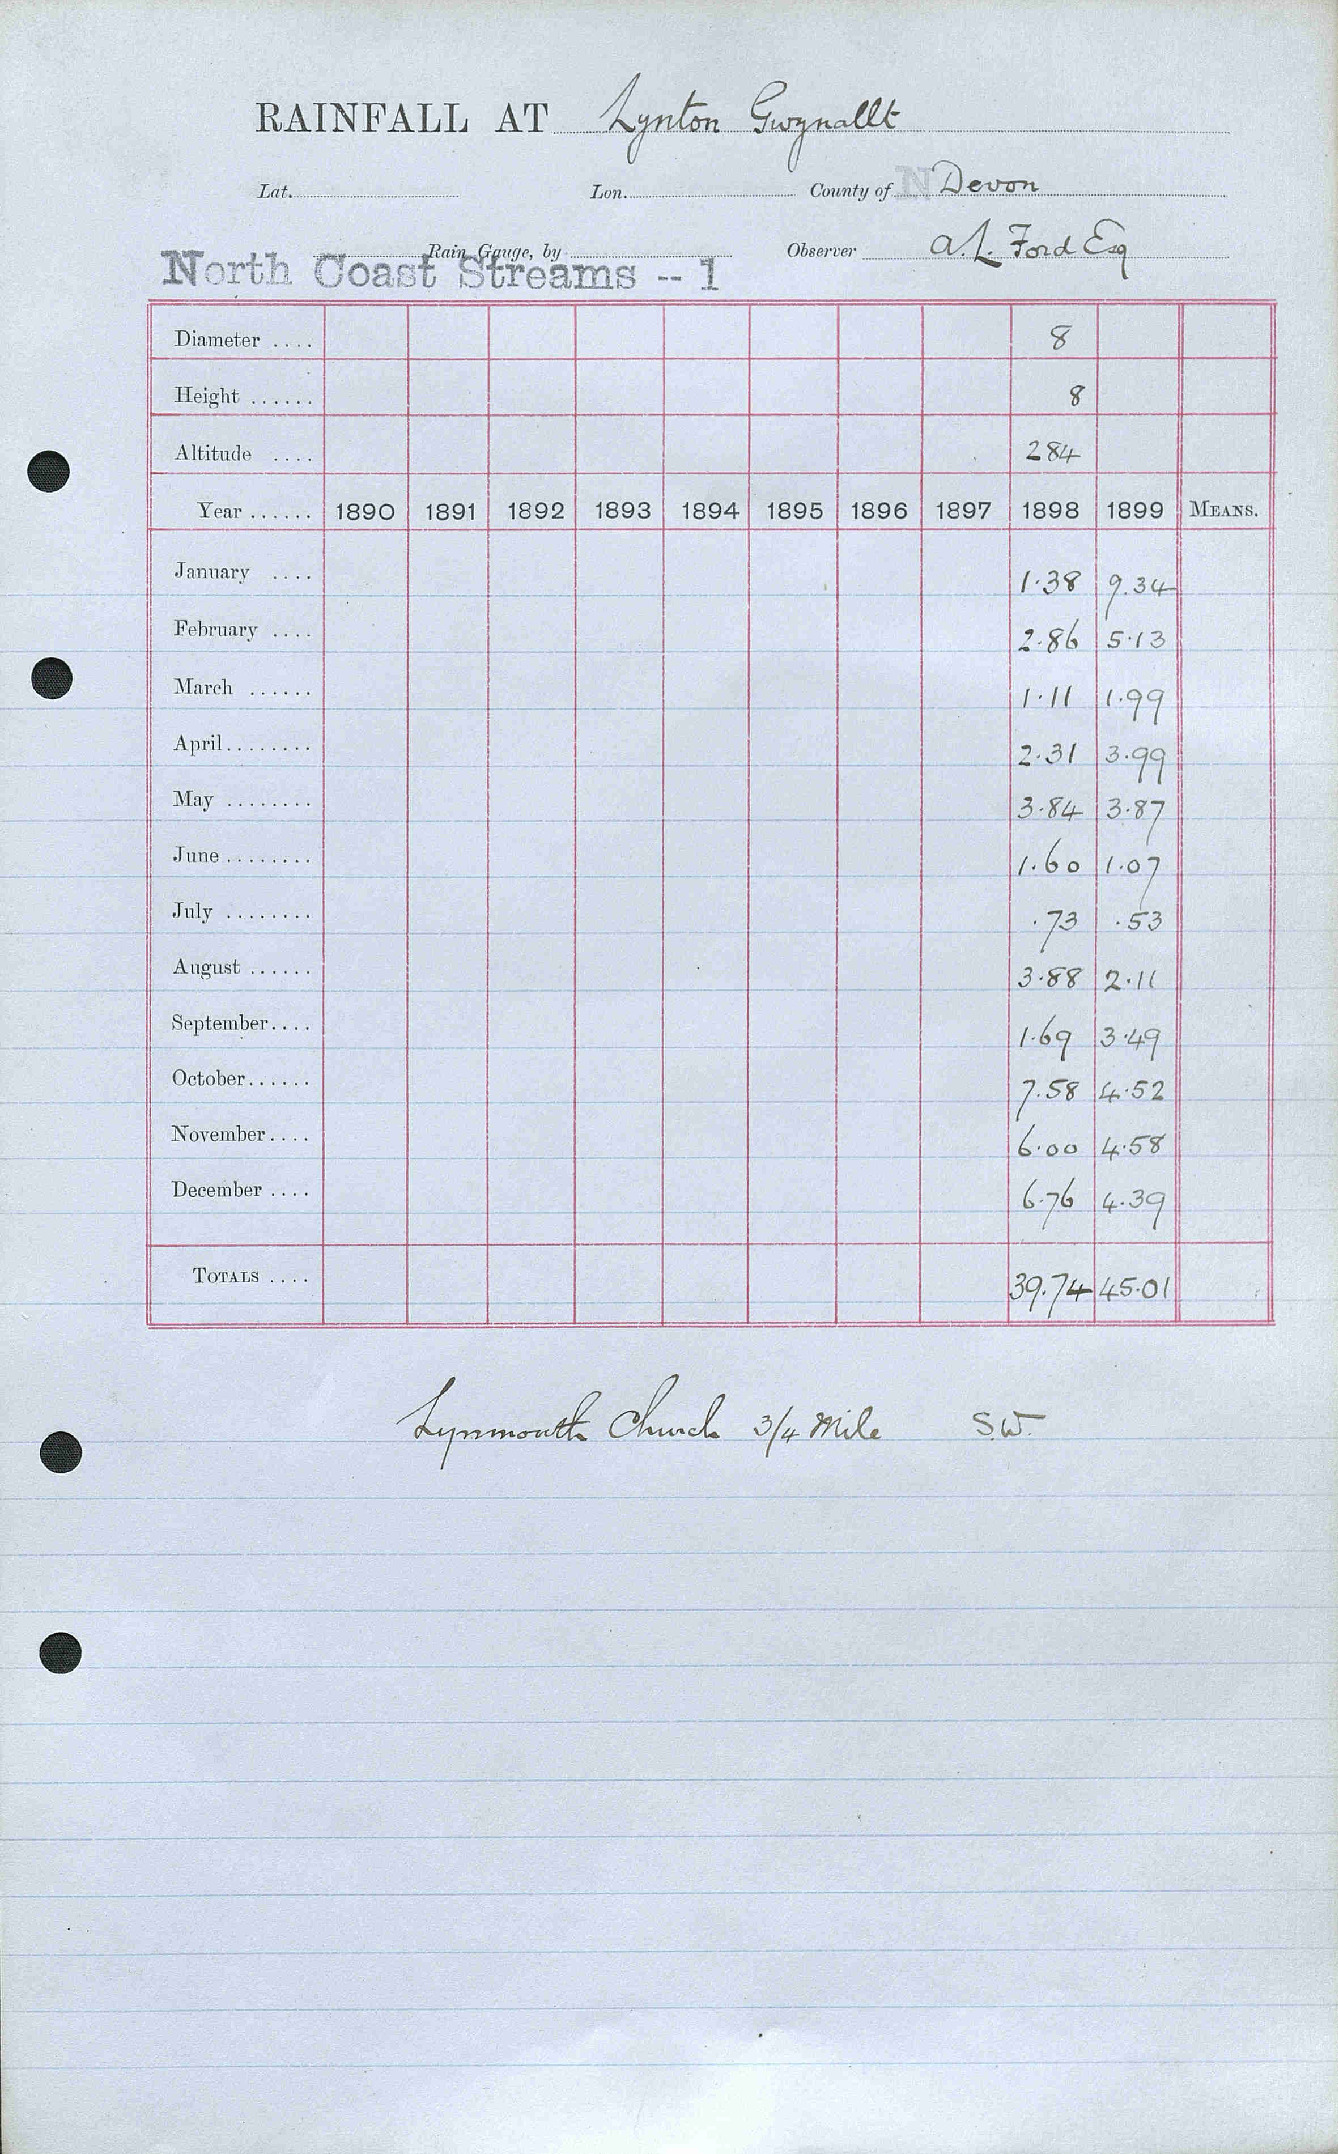 RAINFALL AT Lynton Gwynallt
Lat. Lon. County of N Devon
Rain Gauge, by Observer A.L. Ford Esq
North Coast Streams -- 1
Diameter .... 8
Height ...... 8
Altitude .... 284
Year ...... 1890 1891 1892 1893 1894 1895 1896 1897 1898 1899 MEANS.
January .... 1.38 9.34
February .... 2.86 5.13
March ...... 1.11 1.99
April ........ 2.31 3.99
May ........ 3.84 3.87
June ........ 1.60 1.07
July ........ .73 .53
August ...... 3.88 2.11
September .... 1.69 3.49
October ...... 7.58 4.52
November .... 6.00 4.58
December .... 6.76 4.39
TOTALS .... 39.74 45.01
Lynmouth Church 3/4 Mile S.W.